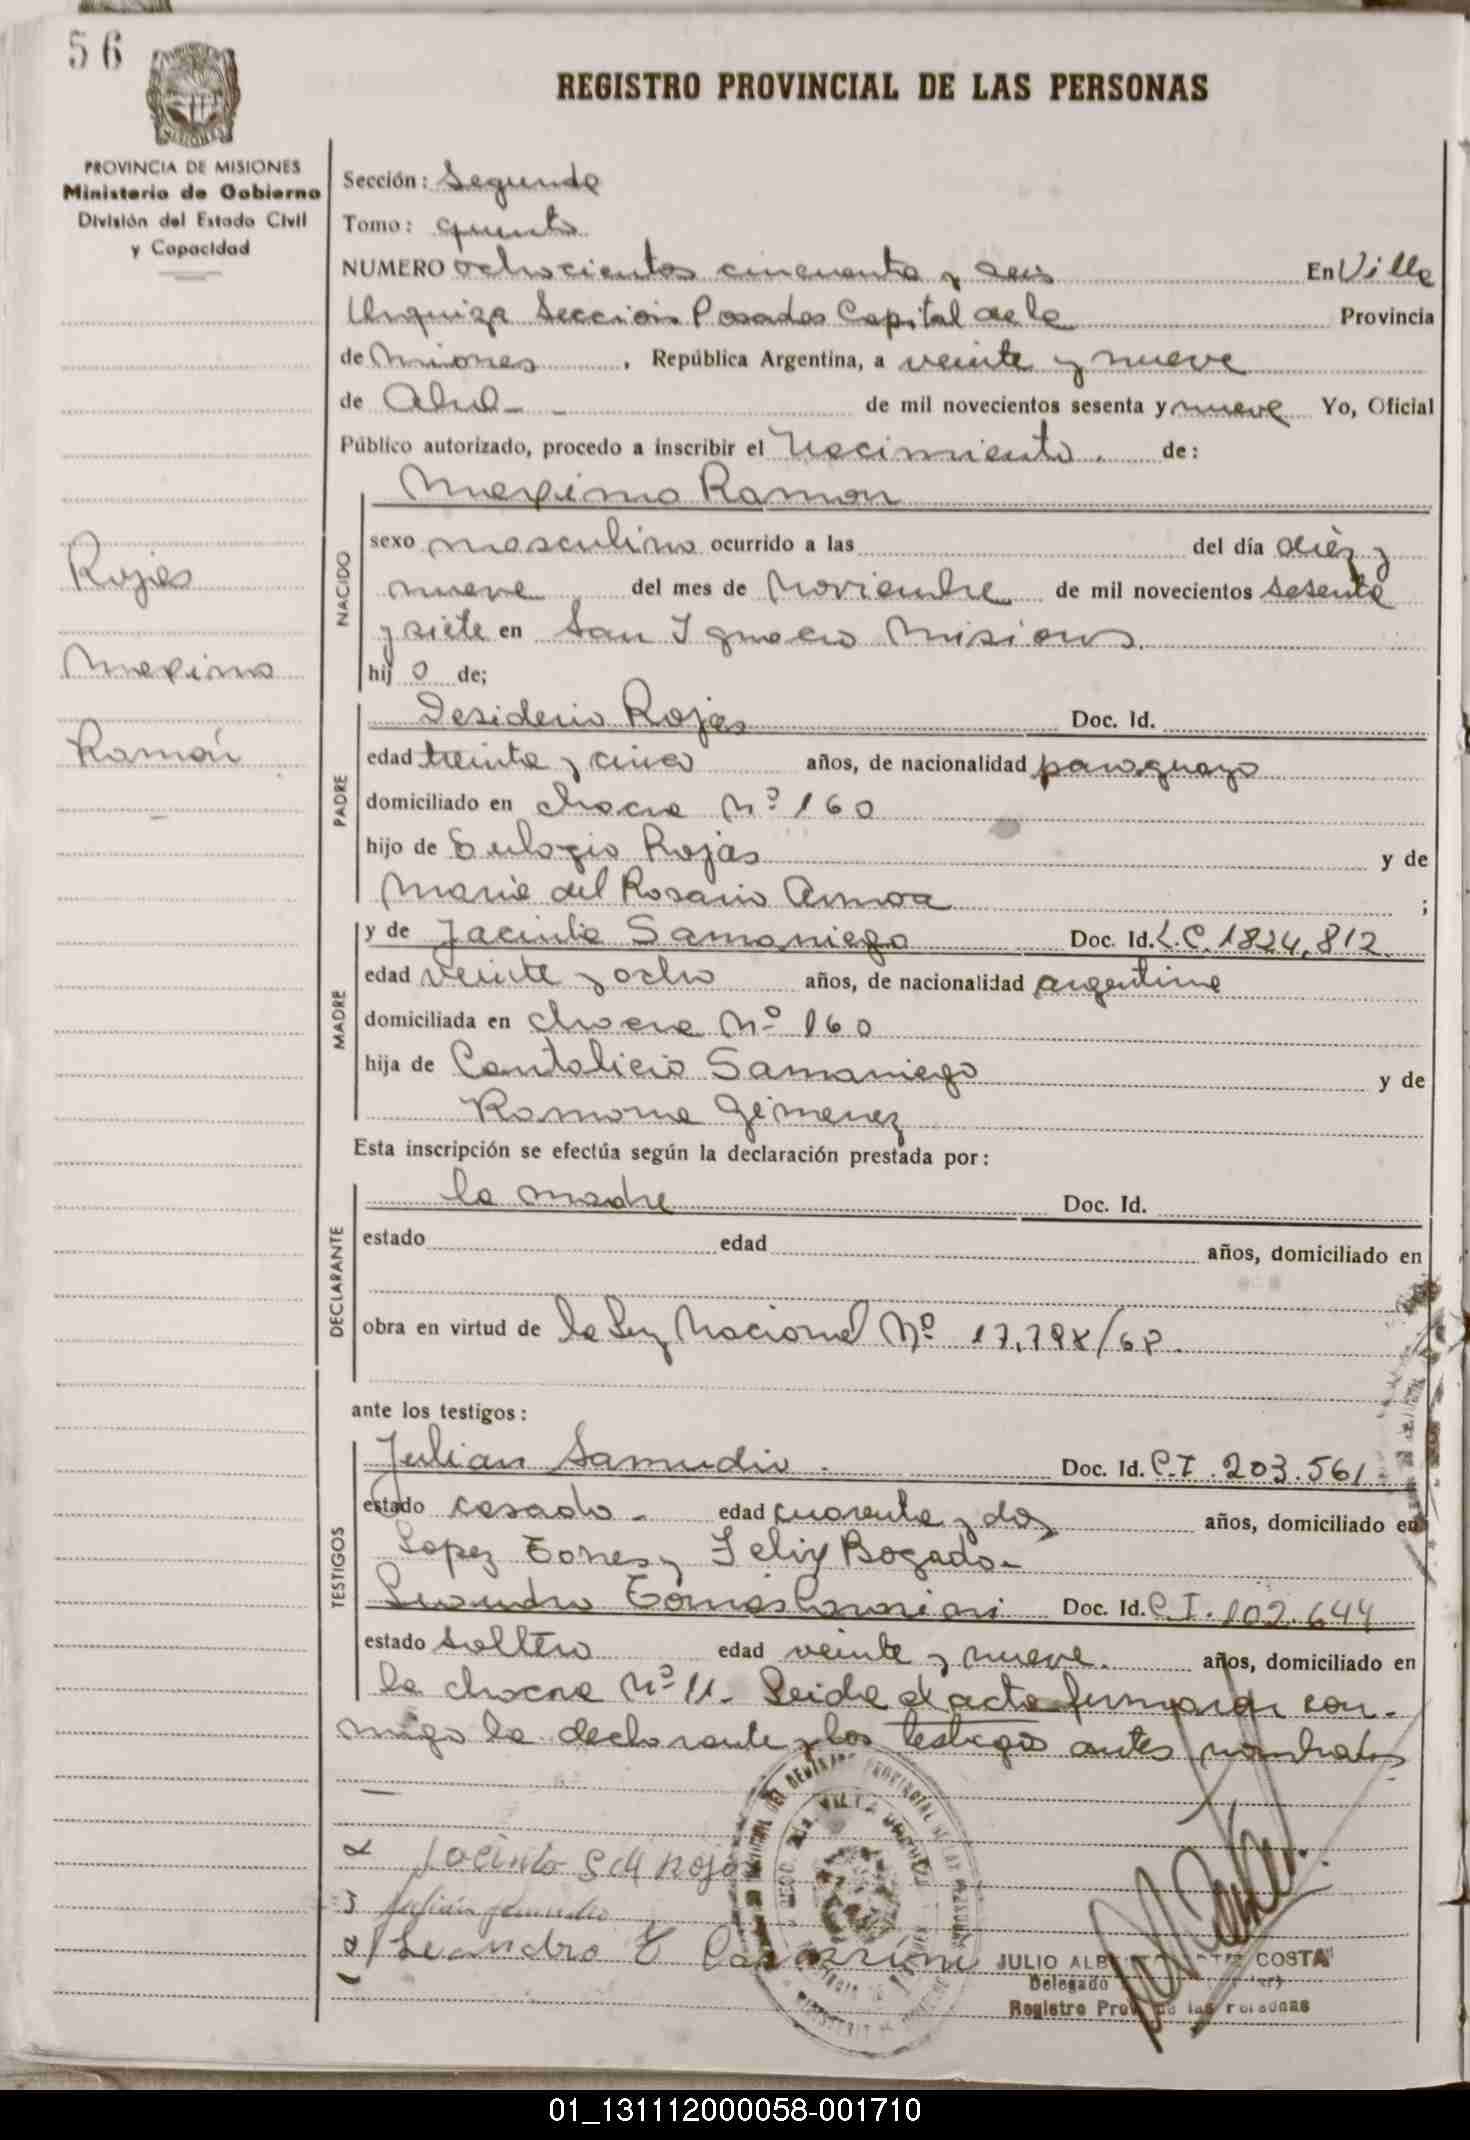 56
REGISTRO PROVINCIAL DE LAS PERSONAS
PROVINCIA DE MISIONES
Ministerio de Gobierno
División del Estado Civil
y Capacidad
Sección: Segunda
Tomo: quinto
NUMERO ochocientos cincuenta y seis En Villa
Urquiza Sección Posadas Capital de la Provincia
de Misiones, República Argentina, a veinte y nueve
de Abril de mil novecientos sesenta y nueve Yo, Oficial
Público autorizado, procedo a inscribir el Nacimiento de:
Maximo Ramon
Rojas
Maximo
Ramón
NACIDO
sexo masculino ocurrido a las del día diéz y
nueve del mes de Noviembre de mil novecientos sesenta
y siete en San Ignacio Misiones.
hijo de;
PADRE
Desiderio Rojas Doc. Id.
edad treinta y cinco años, de nacionalidad paraguayo
domiciliado en chacra Nº 160
hijo de Eulogio Rojas y de
Maria del Rosario Armoa ;
MADRE
y de Jacinta Samaniego Doc. Id. L.C. 1824,812
edad veinte y ocho años, de nacionalidad argentina
domiciliada en chacra Nº 160
hija de Cantalicio Samaniego y de
Ramona Gimenez
Esta inscripción se efectúa según la declaración prestada por:
DECLARANTE
la madre Doc. Id.
estado edad años, domiciliado en
obra en virtud de la Ley Nacional Nº 17,798/68.
ante los testigos:
TESTIGOS
Julian Samudio Doc. Id. C.I. 203.561
estado casado edad cuarenta y dos años, domiciliado en
Lopez Torres y Felix Bogado
Leandro Tomás Doc. Id. C.I. 102.644
estado soltero edad veinte y nueve años, domiciliado en
la chacra Nº 11. Leida el acta firmaron con-
migo la declarante y los testigos antes nombrados
Jacinta S de Rojas
Julián Samudio
Leandro T
JULIO ALB COSTA
Delegado
Registro Prov. de las Personas
01_131112000058-001710